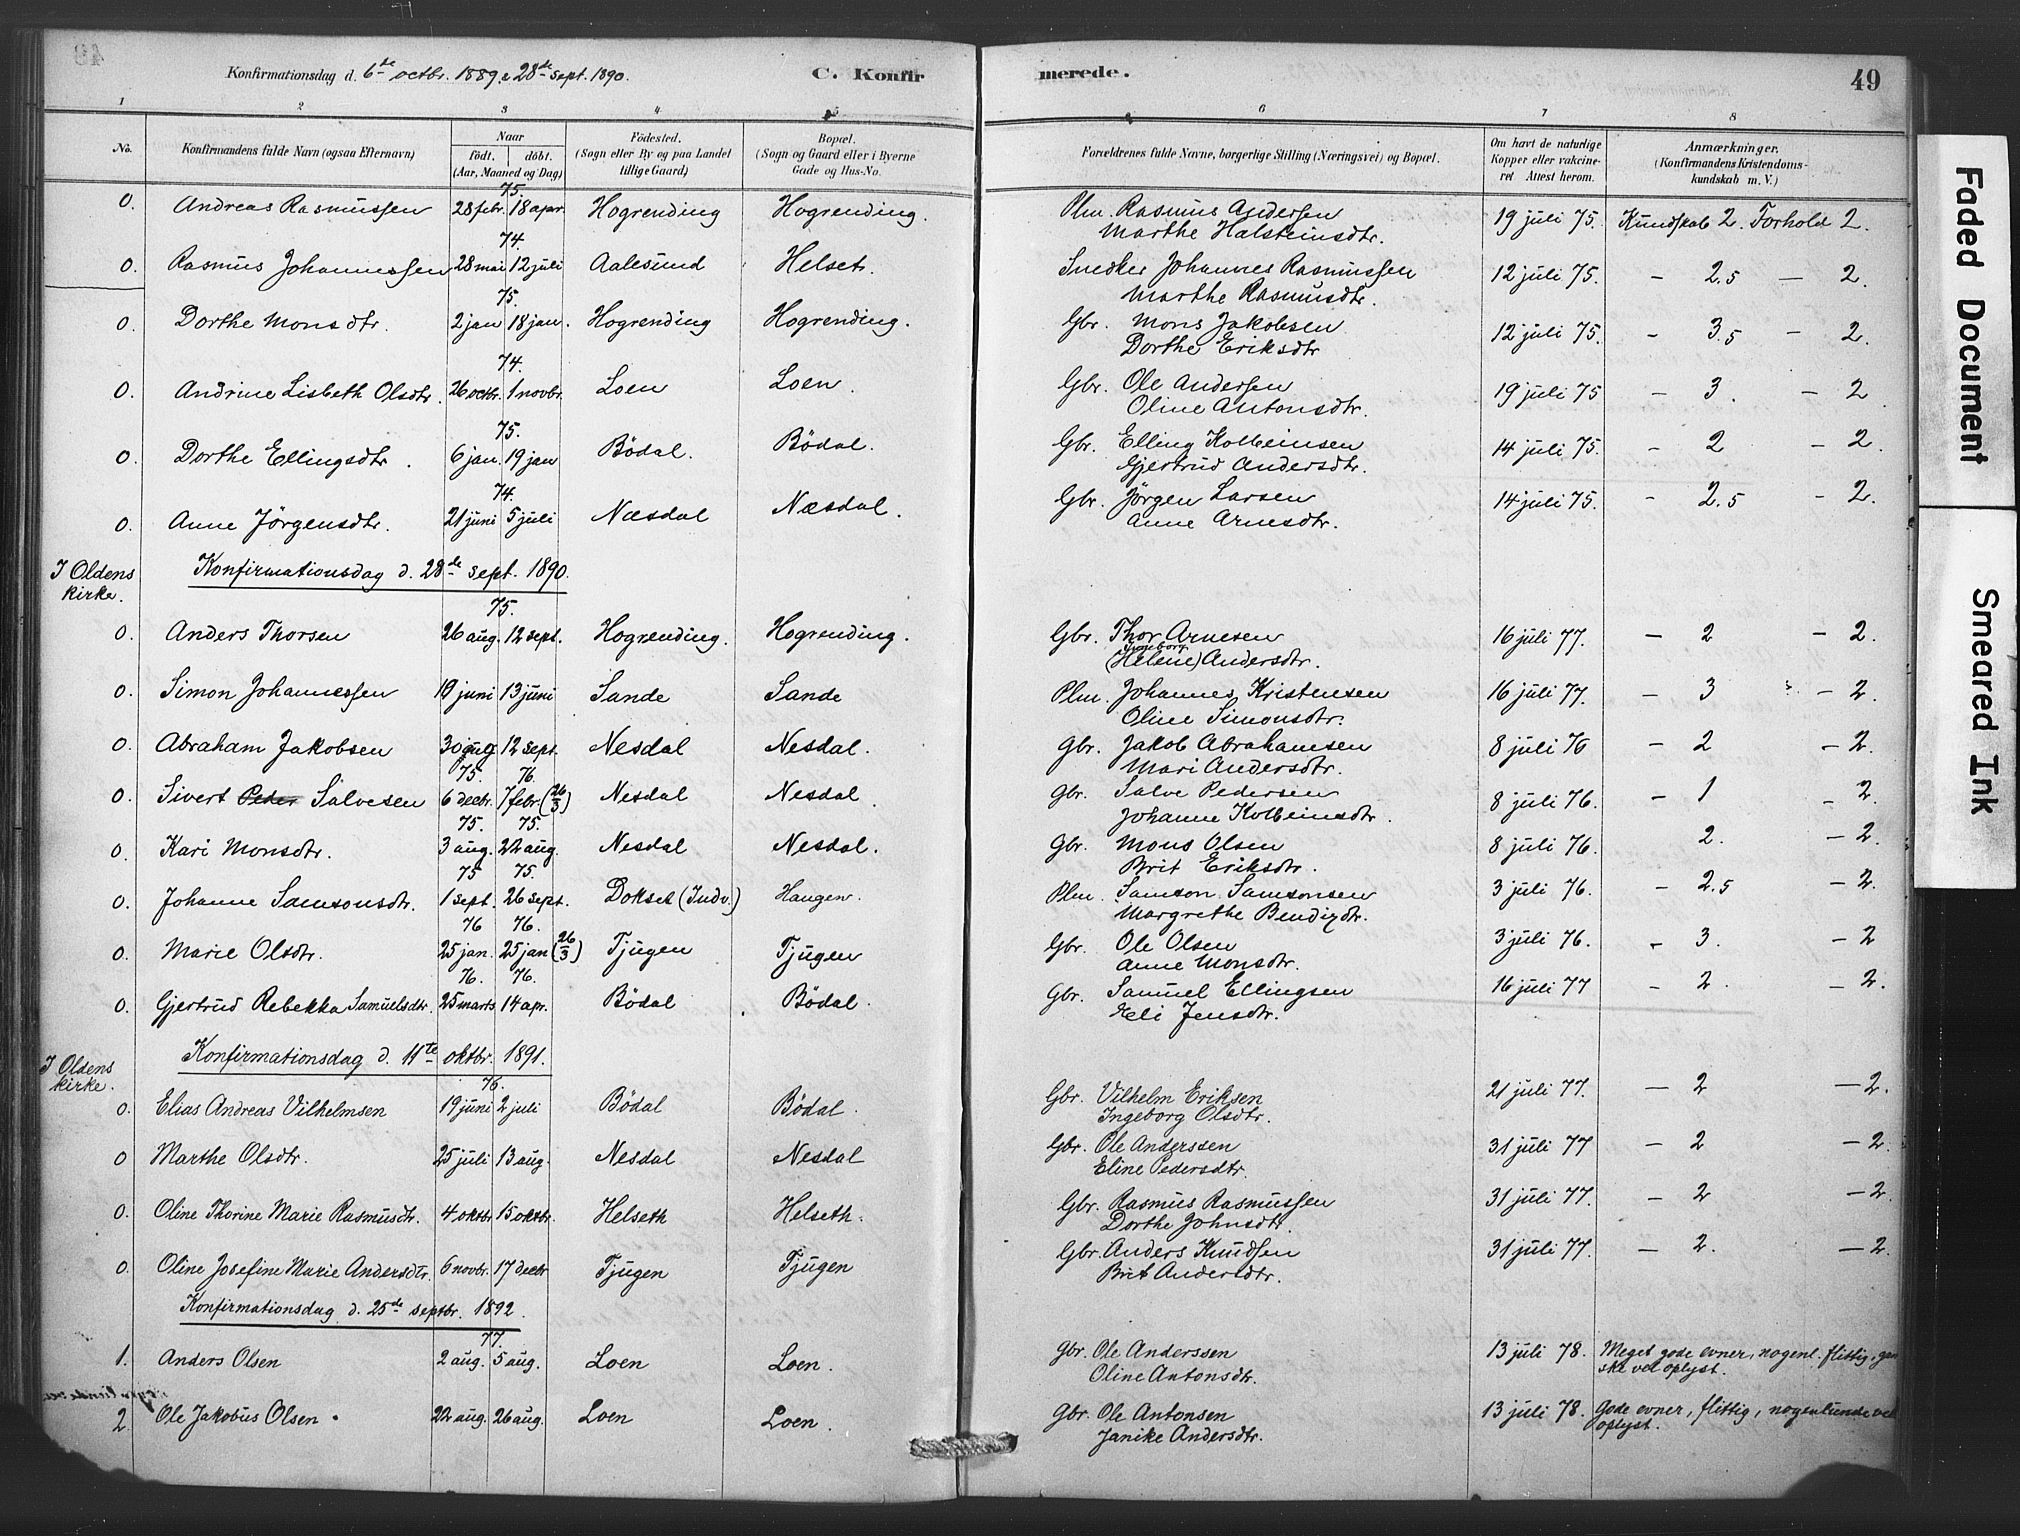 Konfirmationsdag d. 6te octbr. 1889 & 28de sept. 1890. C. Konfirmerede. 49
1 2 3 4 5 6 7 8
No. Konfirmandens fulde Navn (ogsaa Efternavn) Naar født. døbt. (Aar, Maaned og Dag) Födested. (Sogn eller By og paa Landet tillige Gaard) Bopæl. (Sogn og Gaard eller i Byerne Gade og Hus-No. Forældrenes fulde Navne, borgerlige Stilling (Næringsvei) og Bopæl. Om havt de naturlige Kopper eller vakcineret Attest herom. Anmærkninger. (Konfirmandens Kristendomskundskab m. V.)
75.
0. Andreas Rasmussen 28 febr. 18 apr. Hogrending Hogrending. Plm. Rasmus Andersen 19 juli 75. Kundskab 2. Forhold 2.
Marthe Halsteinsdtr.
74.
0. Rasmus Johannessen 28 mai 12 juli Aalesund Helset. Snedker Johannes Rasmussen 12 juli 75. — 2.5 — 2.
Marthe Rasmusdtr.
75.
0. Dorthe Monsdtr. 2 jan 18 jan. Hogrending Hogrending. Gbr. Mons Jakobsen 12 juli 75. — 3.5 — 2.
Dorthe Eriksdtr
74.
0. Andrine Lisbeth Olsdtr. 26 octbr. 1 novbr. Loen Loen. Gbr. Ole Andersen 19 juli 75 — 3. — 2.
Oline Antonsdtr.
75.
0. Dorthe Ellingsdtr. 6 jan. 19 jan Bödal. Bödal. Gbr. Elling Kolbeinsen 14 juli 75. — 2 — 2.
Gjertrud Andersdtr.
74.
0. Anne Jörgensdtr. 21 juni 5 juli Næsdal Næsdal. Gbr. Jörgen Larsen 14 juli 75. — 2.5 — 2.
Anne Arnesdtr.
I Oldens kirke. Konfirmationsdag d. 28de sept. 1890.
75.
0. Anders Thorsen 26 aug. 12 sept. Hogrending. Hogrending. Gbr. Thor Arnesen 16 juli 77. — 2 — 2.
Ingeborg
(Helene) Andersdtr.
0. Simon Johannessen 19 juni 13 juni Sande Sande Plm. Johannes Kristensen 16 juli 77. — 3 — 2.
Oline Simonsdtr.
0. Abraham Jakobsen 30 12 sept. Nesdal Nesdal. Gbr. Jakob Abrahamsen 8 juli 76 — 2 — 2.
Mari Andersdtr.
75. 76.
0. Sivert Peder Salvesen 6 decbr. 7 febr. (26/3) Nesdal Nesdal. Gbr. Salve Pedersen 8 juli 76. — 1 — 2.
Johanne Kolbeinsdtr.
75. 75.
0. Kari Monsdtr. 3 aug. 22 aug. Nesdal Nesdal. Gbr. Mons Olsen 8 juli 76. 2. — 2.
Brit Eriksdtr.
75 75.
0. Johanne Samsonsdtr. 1 sept. 26 sept. Dokset (Indv.) Haugen. Plm. Samson Samsonsen 3 juli 76. — 2.5 — 2.
Margrethe Bendixdtr.
76 76.
0. Marie Olsdtr. 25 jan. 25 jan (26/3) Tjugen Tjugen Gbr. Ole Olsen 3 juli 76. — 3. — 2
Anne Monsdtr.
76. 76.
0. Gjertrud Rebekka Samuelsdtr. 25 marts 14 apr. Bödal Bödal. Gbr. Samuel Ellingsen 16 juli 77 — 2. — 2.
Eli Jensdtr.
I Oldens kirke. Konfirmationsdag d. 11te oktbr. 1891.
76.
0. Elias Andreas Vilhelmsen 19 juni 2 juli Bödal Bödal. Gbr. Vilhelm Eriksen 21 juli 77. — 2 — 2.
Ingeborg Olsdtr.
0 Marthe Olsdtr. 25 juli 13 aug. Nesdal Nesdal Gbr. Ole Anderssen 31 juli 77 — 2 — 2.
Eline Pedersdtr.
0. Oline Thorine Marie Rasmusdtr. 4 oktbr. 15 oktbr. Helseth Helseth. Gbr. Rasmus Rasmussen 31 juli 77. — 2 — 2.
Dorthe Johnsdtr.
0. Oline Josefine Marie Andersdtr. 6 novbr. 17 decbr Tjugen Tjugen Gbr. Anders Knudsen 31 juli 77. — 2. — 2.
Brit Andersdtr.
Konfirmationsdag d. 25de septbr. 1892.
77.
1. Anders Olsen 2 aug. 5 aug. Loen Loen. Gbr. Ole Anderssen 13 juli 78. Meget gode evner, nogenl. flittig, gan
Oline Antonsdtr. ske vel oplyst.
2. Ole Jakobus Olsen. 22 aug. 26 aug. Loen Loen. Gbr. Ole Antonsen 13 juli 78. Gode evner, flittig, nogenlunde vel
Janike Andersdtr. oplyst.
Faded Document
Smeared Ink